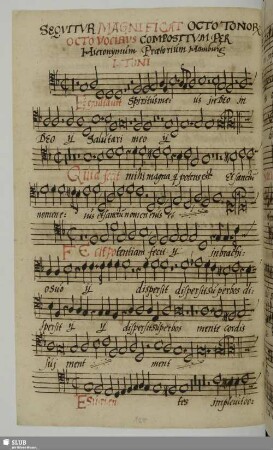 SEQVITVR MAGNIFICAT OCTO TONOR
OCTO VOCIBVS COMPOSITVM PER
Hieronymum Prætorium Hamburg
I. TONI
Et exultavit Spiritus mei us in deo in
Deo ij Salutari meo ij
Quia fecit mihi magna q potens est et sanctu
nomen e: ius et sanctu nomen eius ij
FEcit potentiam fecit ij in brachi:
o suo ij ij dispersit superbos di:
spersit ij ij dispersit superbos mente cordis
sui ment ment
ESurien tes implevit
SLUB